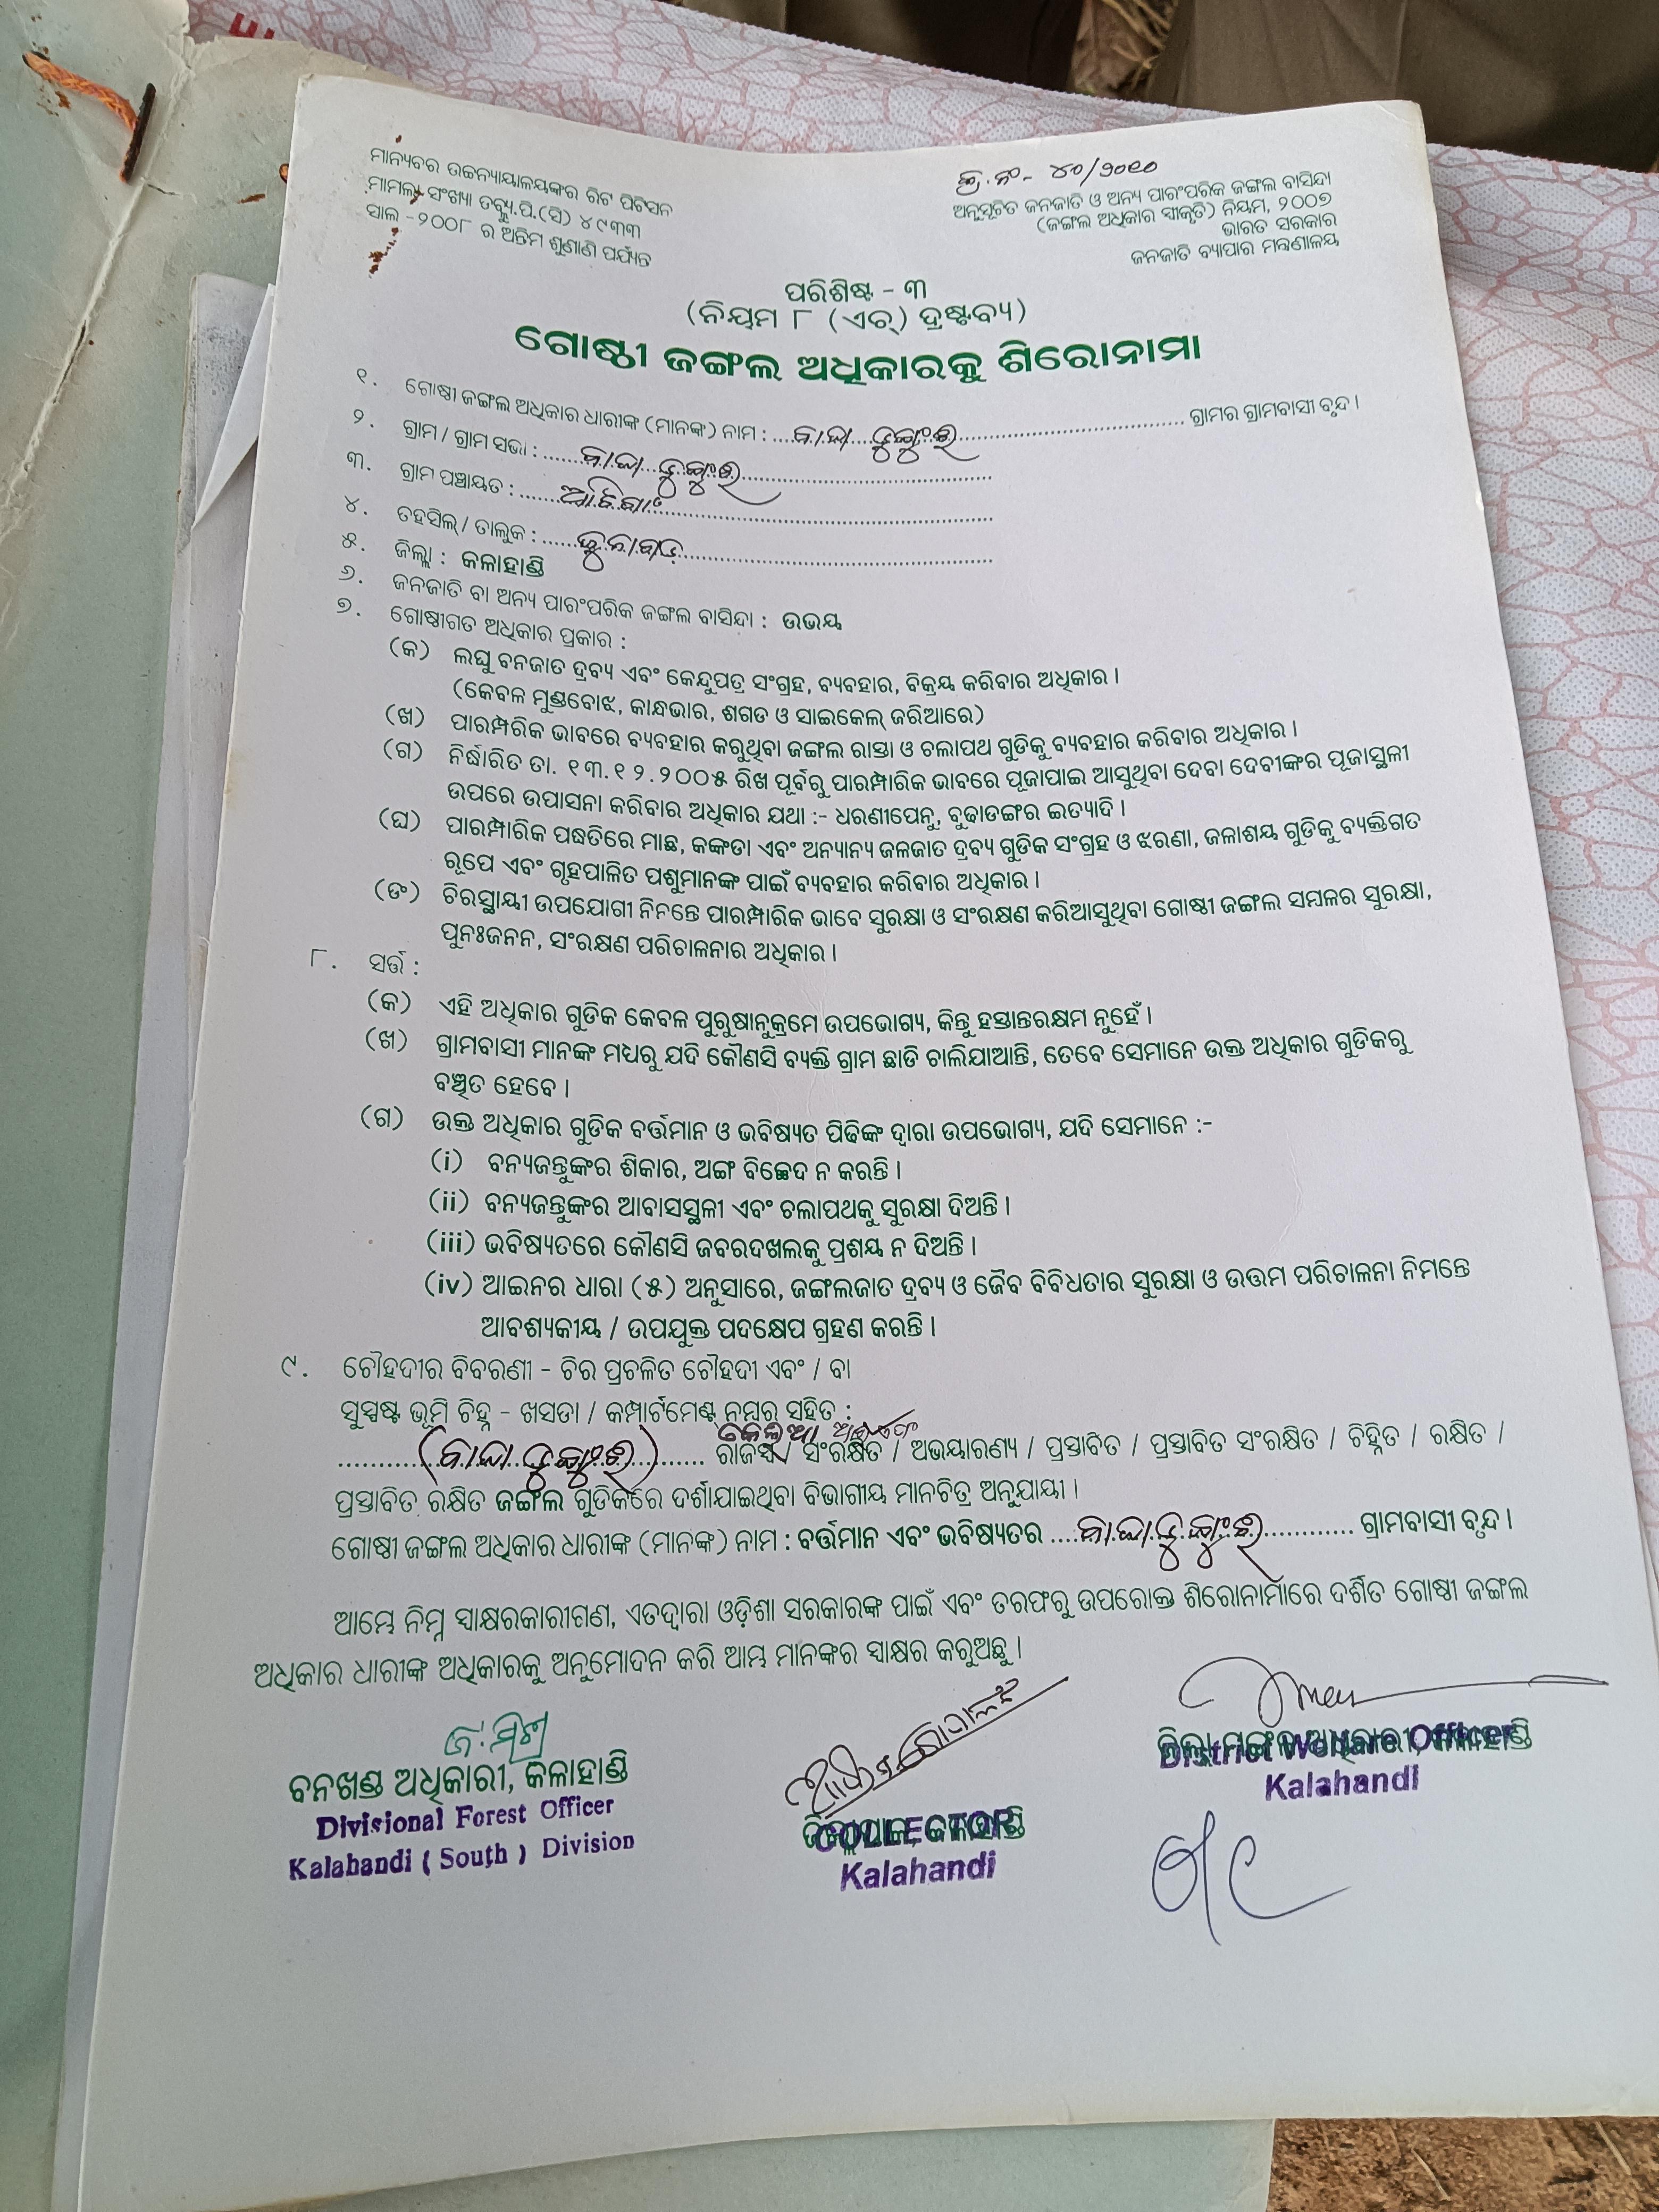 ମାନ୍ୟବର ଉଚ୍ଚନ୍ୟାୟାଳୟଙ୍କର ରିଟ ପିଟିସନ
ମାମଲା ସଂଖ୍ୟା ଡବ୍ଲ୍ୟୁ.ପି.(ସି) ୪୯୩୩
ସାଲ -୨୦୦୮ ର ଅନ୍ତିମ ଶୁଣାଣି ପର୍ଯ୍ୟନ୍ତ
କ୍ର.ନଂ- ୪୦/୨୦୧୦
ଅନୁସୂଚିତ ଜନଜାତି ଓ ଅନ୍ୟ ପାରଂପରିକ ଜଙ୍ଗଲ ବାସିନ୍ଦା
(ଜଙ୍ଗଲ ଅଧିକାର ସ୍ୱୀକୃତି) ନିୟମ, ୨୦୦୭
ଭାରତ ସରକାର
ଜନଜାତି ବ୍ୟାପାର ମନ୍ତ୍ରଣାଳୟ
ପରିଶିଷ୍ଟ - ୩
(ନିୟମ ୮ (ଏଚ୍) ଦ୍ରଷ୍ଟବ୍ୟ)
ଗୋଷ୍ଠୀ ଜଙ୍ଗଲ ଅଧିକାରକୁ ଶିରୋନାମା
୧. ଗୋଷ୍ଠୀ ଜଙ୍ଗଲ ଅଧିକାର ଧାରୀଙ୍କ (ମାନଙ୍କ) ନାମ : ଗ୍ରାମର ଗ୍ରାମବାସୀ ବୃନ୍ଦ ।
୨. ଗ୍ରାମ / ଗ୍ରାମ ସଭା :
୩. ଗ୍ରାମ ପଞ୍ଚାୟତ :
୪. ତହସିଲ୍ / ତାଲୁକ :
୫. ଜିଲ୍ଲା : କଳାହାଣ୍ଡି
୬. ଜନଜାତି ବା ଅନ୍ୟ ପାରଂପରିକ ଜଙ୍ଗଲ ବାସିନ୍ଦା : ଉଭୟ
୭. ଗୋଷ୍ଠୀଗତ ଅଧିକାର ପ୍ରକାର :
(କ) ଲଘୁ ବନଜାତ ଦ୍ରବ୍ୟ ଏବଂ କେନ୍ଦୁପତ୍ର ସଂଗ୍ରହ, ବ୍ୟବହାର, ବିକ୍ରୟ କରିବାର ଅଧିକାର ।
(କେବଳ ମୁଣ୍ଡବୋଝ, କାନ୍ଧଭାର, ଶଗଡ ଓ ସାଇକେଲ୍ ଜରିଆରେ)
(ଖ) ପାରମ୍ପରିକ ଭାବରେ ବ୍ୟବହାର କରୁଥିବା ଜଙ୍ଗଲ ରାସ୍ତା ଓ ଚଲାପଥ ଗୁଡିକୁ ବ୍ୟବହାର କରିବାର ଅଧିକାର ।
(ଗ) ନିର୍ଦ୍ଧାରିତ ତା. ୧୩.୧୨.୨୦୦୫ ରିଖ ପୂର୍ବରୁ ପାରମ୍ପାରିକ ଭାବରେ ପୂଜାପାଇ ଆସୁଥିବା ଦେବା ଦେବୀଙ୍କର ପୂଜାସ୍ଥଳୀ
ଉପରେ ଉପାସନା କରିବାର ଅଧିକାର ଯଥା :- ଧରଣୀପେନୁ, ବୁଢାଡଙ୍ଗର ଇତ୍ୟାଦି ।
(ଘ) ପାରମ୍ପାରିକ ପଦ୍ଧତିରେ ମାଛ, କଙ୍କଡା ଏବଂ ଅନ୍ୟାନ୍ୟ ଜଳଜାତ ଦ୍ରବ୍ୟ ଗୁଡିକ ସଂଗ୍ରହ ଓ ଝରଣା, ଜଳାଶୟ ଗୁଡିକୁ ବ୍ୟକ୍ତିଗତ
ରୂପେ ଏବଂ ଗୃହପାଳିତ ପଶୁମାନଙ୍କ ପାଇଁ ବ୍ୟବହାର କରିବାର ଅଧିକାର ।
(ଙ) ଚିରସ୍ଥାୟୀ ଉପଯୋଗୀ ନିମନ୍ତେ ପାରମ୍ପାରିକ ଭାବେ ସୁରକ୍ଷା ଓ ସଂରକ୍ଷଣ କରିଆସୁଥିବା ଗୋଷ୍ଠୀ ଜଙ୍ଗଲ ସମ୍ବଳର ସୁରକ୍ଷା,
ପୁନଃଜନନ, ସଂରକ୍ଷଣ ପରିଚାଳନାର ଅଧିକାର ।
୮. ସର୍ତ୍ତ :
(କ) ଏହି ଅଧିକାର ଗୁଡିକ କେବଳ ପୁରୁଷାନୁକ୍ରମେ ଉପଭୋଗ୍ୟ, କିନ୍ତୁ ହସ୍ତାନ୍ତରକ୍ଷମ ନୁହେଁ ।
(ଖ) ଗ୍ରାମବାସୀ ମାନଙ୍କ ମଧ୍ୟରୁ ଯଦି କୌଣସି ବ୍ୟକ୍ତି ଗ୍ରାମ ଛାଡି ଚାଲିଯାଆନ୍ତି, ତେବେ ସେମାନେ ଉକ୍ତ ଅଧିକାର ଗୁଡିକରୁ
ବଞ୍ଚିତ ହେବେ ।
(ଗ) ଉକ୍ତ ଅଧିକାର ଗୁଡିକ ବର୍ତ୍ତମାନ ଓ ଭବିଷ୍ୟତ ପିଢିଙ୍କ ଦ୍ୱାରା ଉପଭୋଗ୍ୟ, ଯଦି ସେମାନେ :-
(i) ବନ୍ୟଜନ୍ତୁଙ୍କର ଶିକାର, ଅଙ୍ଗ ବିଚ୍ଛେଦ ନ କରନ୍ତି ।
(ii) ବନ୍ୟଜନ୍ତୁଙ୍କର ଆବାସସ୍ଥଳୀ ଏବଂ ଚଲାପଥକୁ ସୁରକ୍ଷା ଦିଅନ୍ତି ।
(iii) ଭବିଷ୍ୟତରେ କୌଣସି ଜବରଦଖଲକୁ ପ୍ରଶୟ ନ ଦିଅନ୍ତି ।
(iv) ଆଇନର ଧାରା (୫) ଅନୁସାରେ, ଜଙ୍ଗଲଜାତ ଦ୍ରବ୍ୟ ଓ ଜୈବ ବିବିଧତାର ସୁରକ୍ଷା ଓ ଉତ୍ତମ ପରିଚାଳନା ନିମନ୍ତେ
ଆବଶ୍ୟକୀୟ / ଉପଯୁକ୍ତ ପଦକ୍ଷେପ ଗ୍ରହଣ କରନ୍ତି ।
୯. ଚୌହଦୀର ବିବରଣୀ - ଚିର ପ୍ରଚଳିତ ଚୌହଦୀ ଏବଂ / ବା
ସୁସ୍ପଷ୍ଟ ଭୂମି ଚିହ୍ନ - ଖସଡା / କମ୍ପାର୍ଟମେଣ୍ଟ ନମ୍ବର ସହିତ :
ରାଜସ୍ୱ / ସଂରକ୍ଷିତ / ଅଭୟାରଣ୍ୟ / ପ୍ରସ୍ତାବିତ / ପ୍ରସ୍ତାବିତ ସଂରକ୍ଷିତ / ଚିହ୍ନିତ / ରକ୍ଷିତ /
ପ୍ରସ୍ତାବିତ ରକ୍ଷିତ ଜଙ୍ଗଲ ଗୁଡିକରେ ଦର୍ଶାଯାଇଥିବା ବିଭାଗୀୟ ମାନଚିତ୍ର ଅନୁଯାୟୀ ।
ଗୋଷ୍ଠୀ ଜଙ୍ଗଲ ଅଧିକାର ଧାରୀଙ୍କ (ମାନଙ୍କ) ନାମ : ବର୍ତ୍ତମାନ ଏବଂ ଭବିଷ୍ୟତର ଗ୍ରାମବାସୀ ବୃନ୍ଦ ।
ଆମ୍ଭେ ନିମ୍ନ ସ୍ୱାକ୍ଷରକାରୀଗଣ, ଏତଦ୍ୱାରା ଓଡ଼ିଶା ସରକାରଙ୍କ ପାଇଁ ଏବଂ ତରଫରୁ ଉପରୋକ୍ତ ଶିରୋନାମାରେ ଦର୍ଶିତ ଗୋଷ୍ଠୀ ଜଙ୍ଗଲ
ଅଧିକାର ଧାରୀଙ୍କ ଅଧିକାରକୁ ଅନୁମୋଦନ କରି ଆମ୍ଭ ମାନଙ୍କର ସ୍ୱାକ୍ଷର କରୁଅଛୁ ।
ବନଖଣ୍ଡ ଅଧିକାରୀ, କଳାହାଣ୍ଡି
Divisional Forest Officer
Kalahandi ( South ) Division
ଜିଲ୍ଲାପାଳ, କଳାହାଣ୍ଡି
COLLECTOR
Kalahandi
ଜିଲ୍ଲା ମଙ୍ଗଳ ଅଧିକାରୀ, କଳାହାଣ୍ଡି
District Welfare Officer
Kalahandi